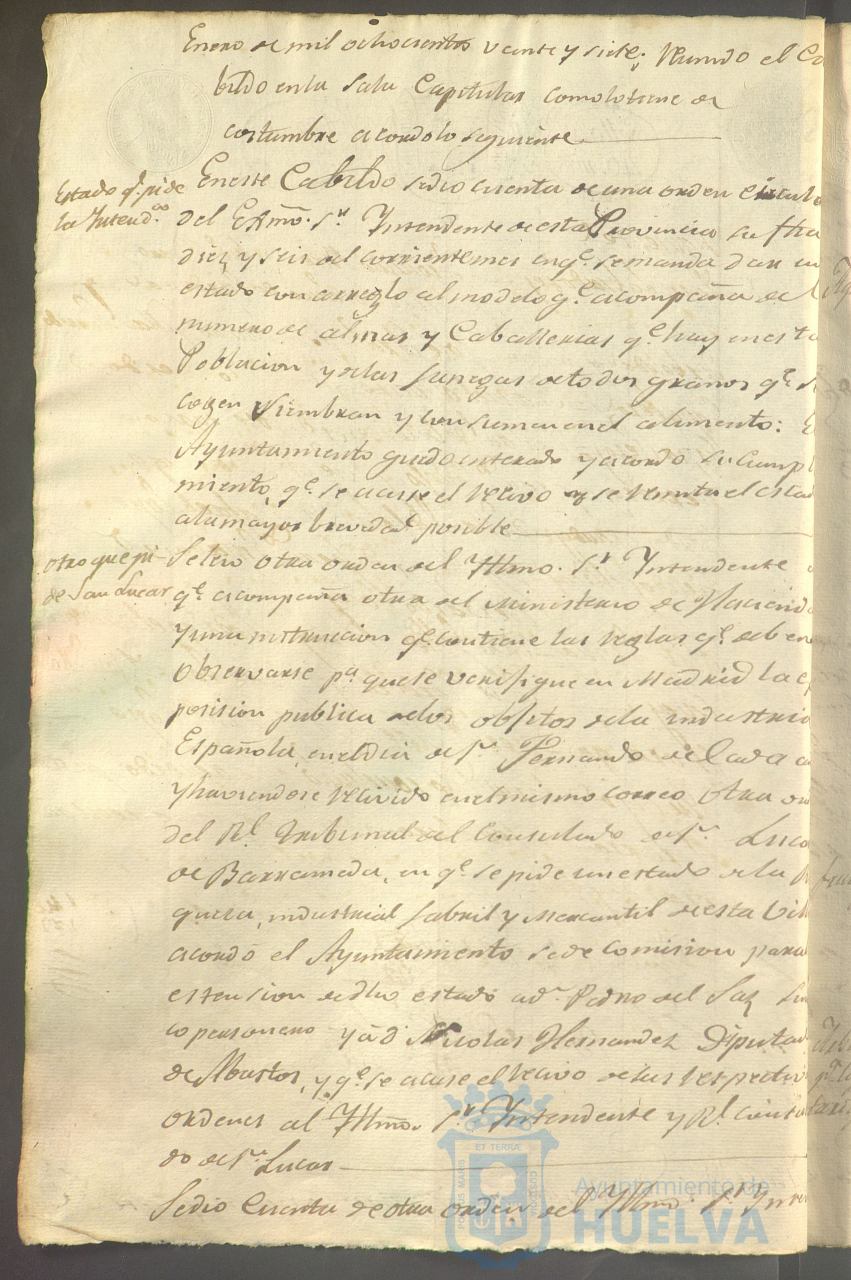 Enero de mil ochocientos veinte y siete; Reunido el Ca
bildo en la Sala Capitular como lo tiene de
costumbre acordo lo seguiente
Estado q.e pide
la Yntend.a
En este Cabildo se dio cuenta de una orden circula
del Exmo. S.r Yntendente de esta Provincia su fha
diez y seis del corriente mes en q.e se manda dar un
estado con arreglo al modelo q.e acompaña de l
numero de almas y Caballerias q.e hay en esta
Poblacion y de las fanegas de todos granos q.e se
cogen siembran y consumen en el alimento: El
Ayuntamiento quedo enterado y acordo su cumpl
miento, q.e se acuse el recivo y se remita el estad
a la mayor brevedad posible
Otro que pi-
de San Lucar
Se leio otra orden del Yltmo. S.r Yntendente
q.e acompaña otra del Ministerio de Haciend
y una instrucion q.e contiene las reglas q.e deben
observarse p.a que se verifique en Madrid la es
posision publica de los objetos de la industria
Española, en el dia de S.n Fernando de cada a
y haviendose recivido en el mismo correo otra or
del R.l Tribunal del Consulado de S.n Luca
de Barrameda, en q.e se pide un estado de la ri
queza, industrial fabril y Mercantil de esta Vill
acordó el Ayuntamiento se de comision para
estension de dho estado a d.n Pedro del Saz Sin
co personero y á d.n Nicolas Hernandez Diputad
de Abastos, y q.e se acuse el recivo de sus respectiv
ordenes al Yltmo. S.r Yntendente y R.l Consula
do de S.n Lucar
Se dio Cuenta de otra orden del Yltmo. S.r Ynten
ET TERRAE
Ayuntamiento de
HUELVA